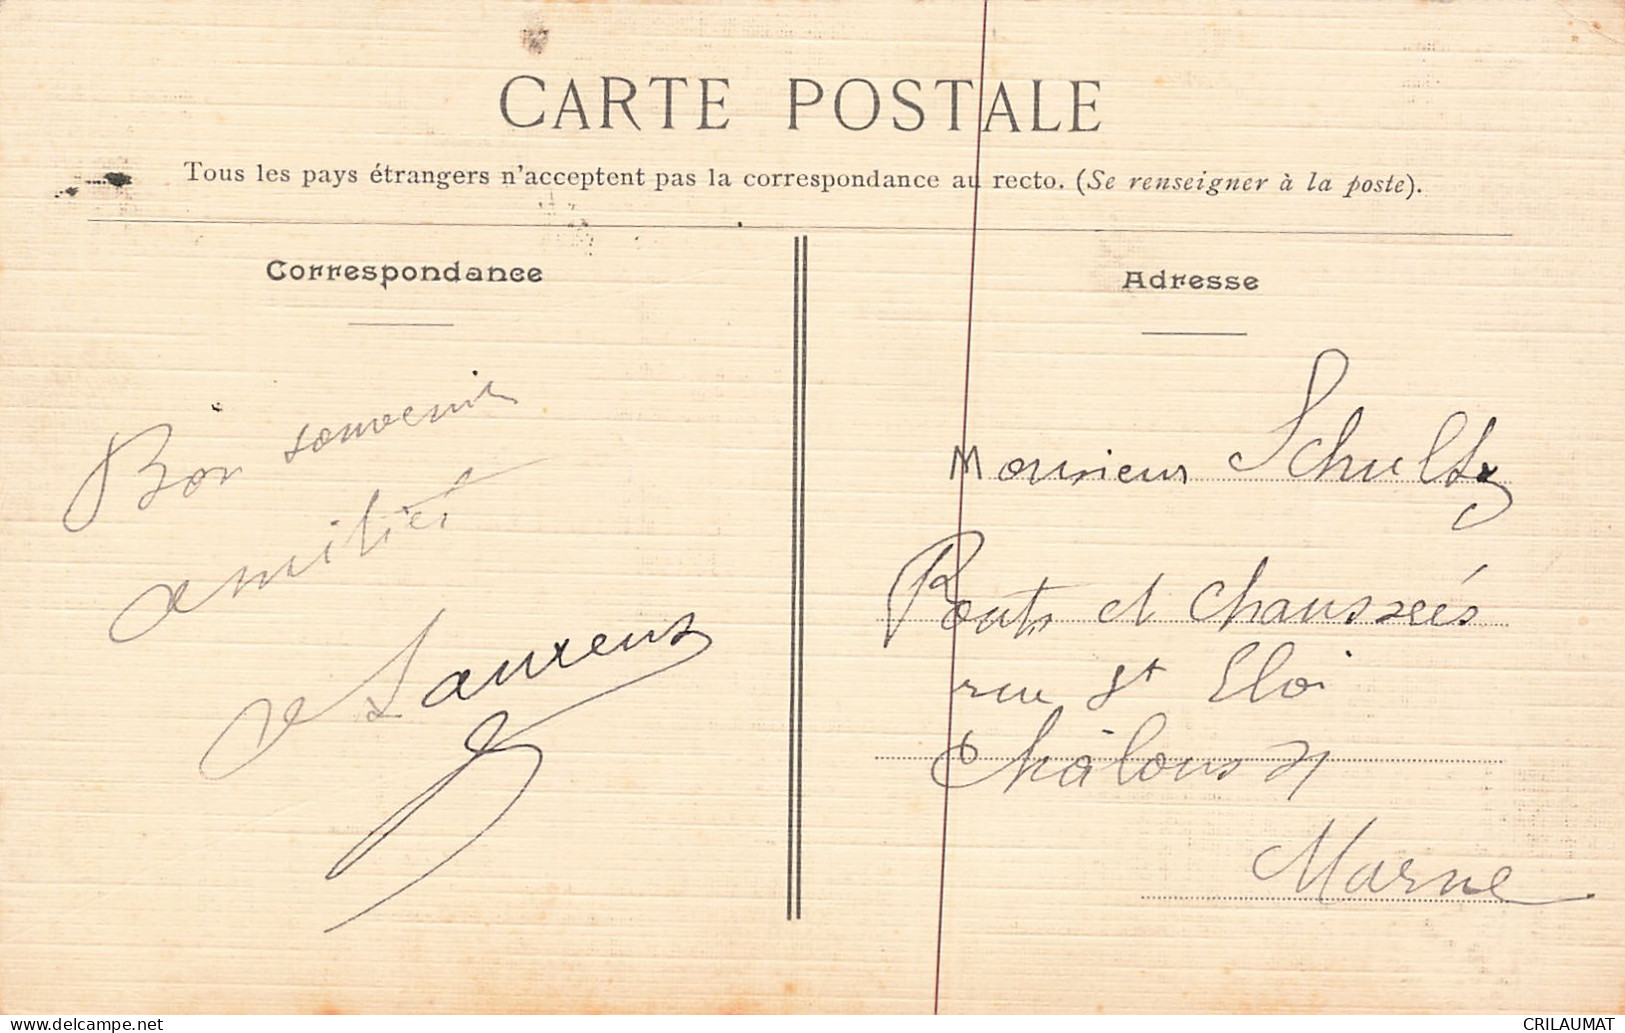 CARTE POSTALE
Tous les pays étrangers n'acceptent pas la correspondance au recto. (Se renseigner à la poste).
Correspondance
Bon souvenir
amitiés
de Laurens
Adresse
Monsieur Schultz
Ponts et chaussées
rue St Eloi
Châlons
Marne
delcampe.net
CRILAUMAT